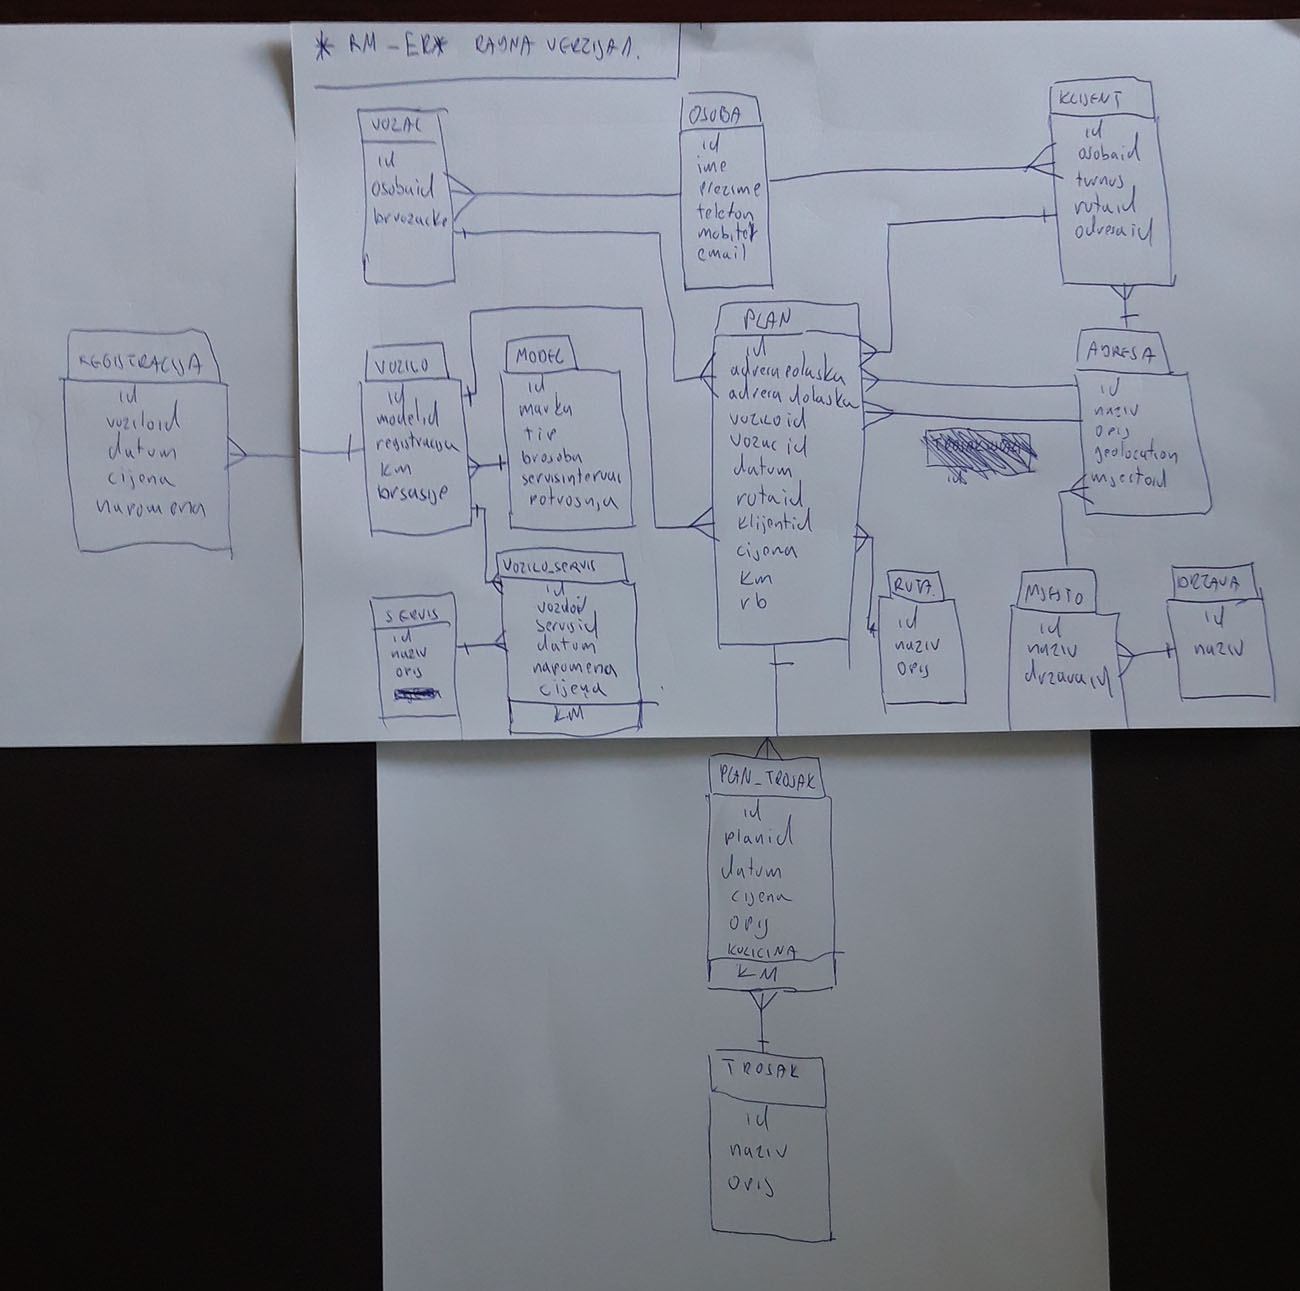 * RM - ER * RADNA VERZIJA 1.
VOZAC
id
osobaid
brvozacke
OSOBA
id
ime
prezime
telefon
mobitel
email
KLIJENT
id
osobaid
turnus
rutaid
adresaid
REGISTRACIJA
id
voziloid
datum
cijena
napomena
VOZILO
id
modelid
registracija
km
brsasije
MODEL
id
marka
tip
brosoba
servisinterval
potrosnja
PLAN
id
adresa polaska
adresa dolaska
voziloid
vozac id
datum
rutaid
klijentid
cijena
km
rb
ADRESA
id
naziv
opis
geolocation
mjestoid
id
SERVIS
id
naziv
opis
VOZILO_SERVIS
id
servisid
datum
napomena
cijena
KM
RUTA
id
naziv
opis
MJESTO
id
naziv
drzavaid
DRZAVA
id
naziv
PLAN_TROSAK
id
planid
datum
cijena
opis
KOLICINA
KM
TROSAK
id
naziv
opis